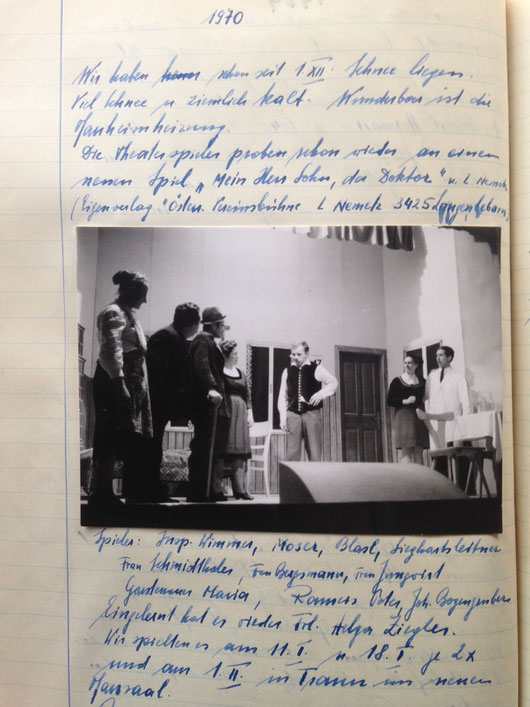 1970
Wir haben schon seit 1. XII. Schnee liegen.
Viel Schnee u. ziemlich kalt. Wunderbar ist die
Pfarrheimheizung.
Die Theaterspieler proben schon wieder an einem
neuen Spiel „Mein Herr Sohn, der Doktor" v. L. Nemetz
(Eigenverlag "Österr. Vereinsbühne L Nemetz 3425 Langenlebarn,
Spieler: Insp. Wimmer, Moser, Blasl, Sieghartsleitner
Frau Schmidthaler, Frau Bergsmann, Frau
Maria, Peter, Joh.
Eingelernt hat es wieder Frl. Helga Ziegler.
Wir spielten es am 11. I. u. 18. I. je 2x
und am 1. II. in Traun im neuen
Pfarrsaal.